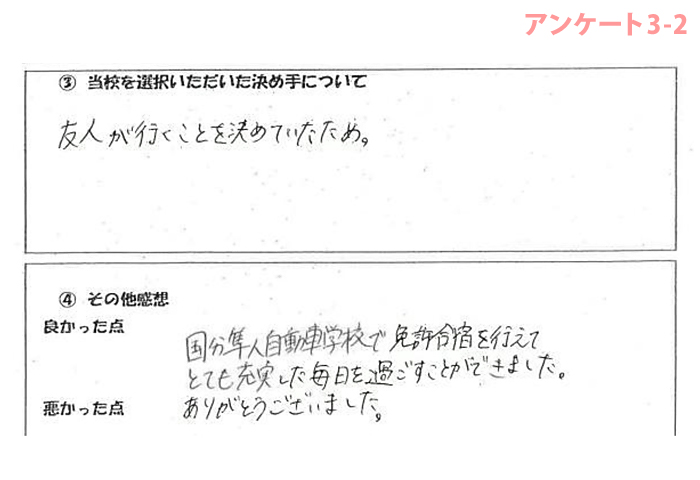 アンケート3-2
③ 当校を選択いただいた決め手について
友人が行くことを決めていたため。
④ その他感想
良かった点
国分隼人自動車学校で免許合宿を行えて
とても充実した毎日を過ごすことができました。
悪かった点
ありがとうございました。